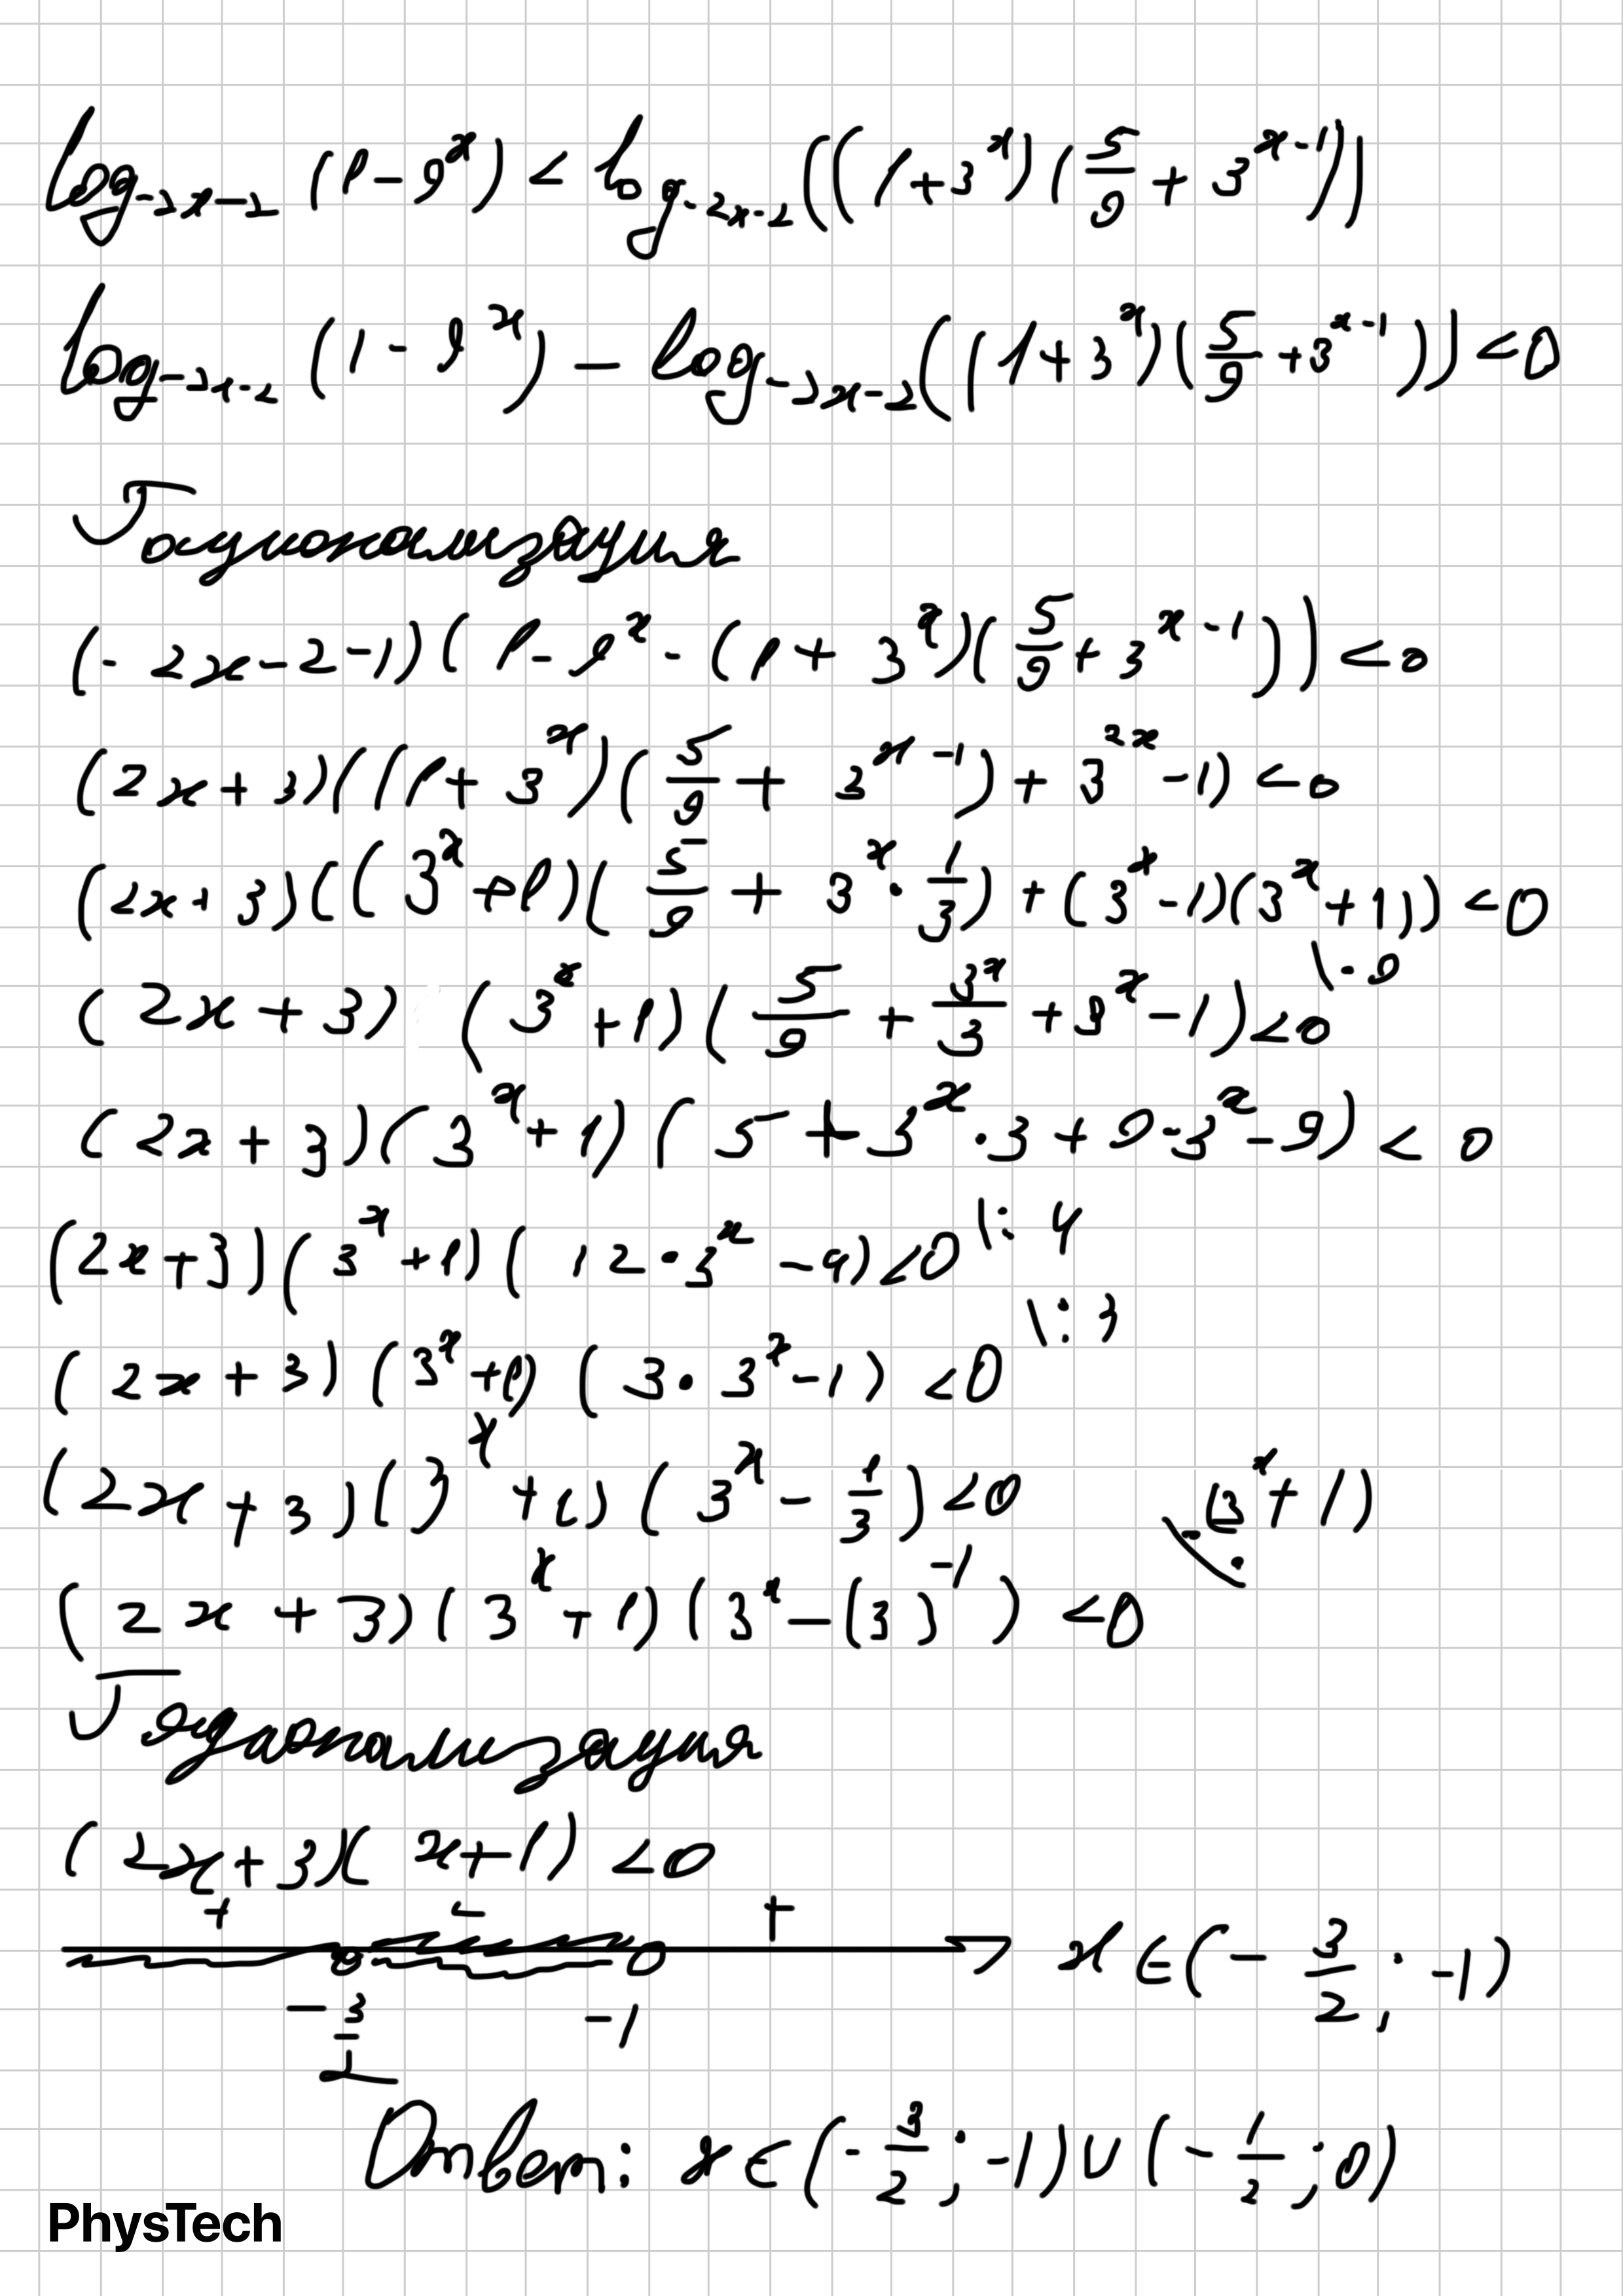 log_{-2x-2} (1 - 9^x) < log_{-2x-2} ((1 + 3^x)(5/9 + 3^{x-1}))
log_{-2x-2} (1 - 9^x) - log_{-2x-2} ((1 + 3^x)(5/9 + 3^{x-1})) < 0
(-2x-2-1)(1 - 9^x - (1 + 3^x)(5/9 + 3^{x-1})) < 0
(2x + 3)((1 + 3^x)(5/9 + 3^{x-1}) + 3^{2x} - 1) < 0
(2x + 3)((3^x + 1)(5/9 + 3^x · 1/3) + (3^x - 1)(3^x + 1)) < 0
(2x + 3) (3^x + 1)(5/9 + 3^x/3 + 3^x - 1) < 0 \· 9
(2x + 3)(3^x + 1)(5 + 3^x · 3 + 9 · 3^x - 9) < 0
(2x + 3)(3^x + 1)(12 · 3^x - 4) < 0 \: 4
(2x + 3)(3^x + 1)(3 · 3^x - 1) < 0 \: 3
(2x + 3)(3^x + 1)(3^x - 1/3) < 0 \: (3^x + 1)
(2x + 3)(3^x + 1)(3^x - (3)^{-1}) < 0
(2x + 3)(x + 1) < 0
+ - +
-3/2 -1 x ∈ (-3/2; -1)
Ответ: x ∈ (-3/2; -1) ∪ (-1/2; 0)
PhysTech